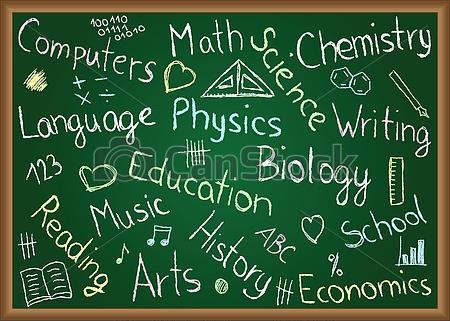 100101
01010
01101
Computers
Math
Science
Chemistry
Language
Physics
Writing
123
Education
Biology
Music
Reading
History
ABC
School
Arts
%
Economics
© CanStock